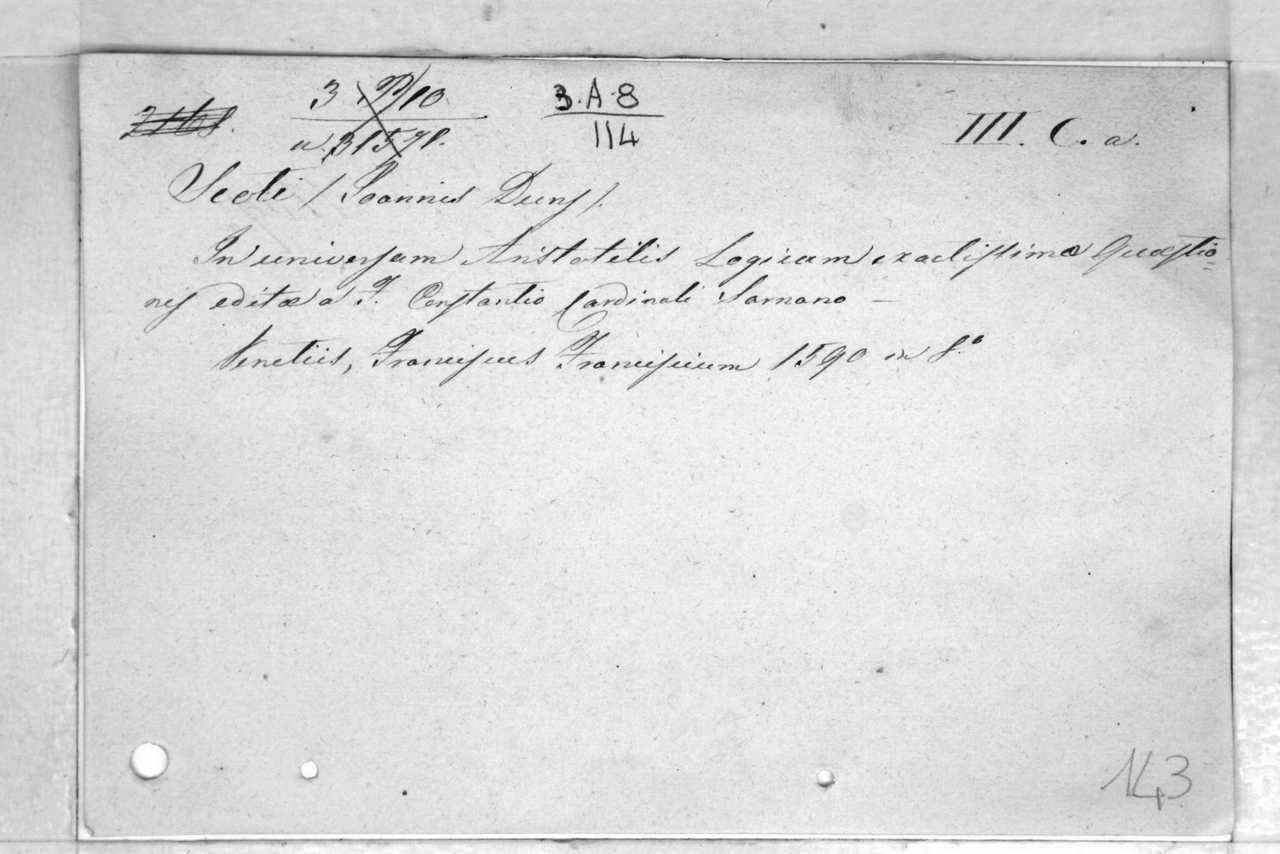 3.A.8
114
III. C. a.
Scoti / Joannis Duns /.
In universam Aristotilis Logicam exactissimæ Quæstio=
nis editæ a F. Constantio Cardinali Sarnano –
Venetiis, Franciscus Franciscium 1590 in 8.°
143